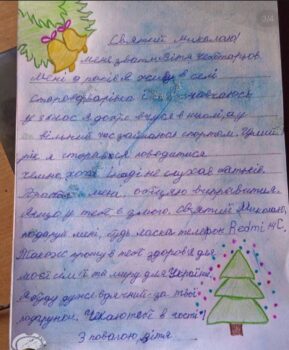 Святий Миколаю!
Мене звати Вітя
Мені 9 років я живу в селі
і навчаюсь
у 3 класі. Я добре вчуся в школі, а у
вільний час займаюся спортом. Цілий
рік я старався поводитися
чемно, хоча іноді не слухав батьків.
Пробач мені, обіцяю виправитися.
Якщо у тебе є змога, Святий Миколаю,
подаруй мені, будь ласка телефон Redmi 9C.
Також прошу в тебе здоров'я для
моєї сім'ї та миру для України.
Я буду дуже вдячний за твої
подарунки. Чекаю тебе в гості!
З повагою, Вітя
3/4